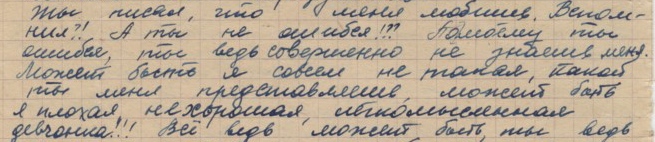 Ты писал, что меня любишь. Вспом-
нил?! А ты не ошибся!!? Помоему ты
ошибся, ты ведь совершенно не знаешь меня.
Может быть я совсем не такая, какой
ты меня представляешь, может быть
я плохая, нехорошая, легкомысленная
девчонка!!! Всё ведь может быть, ты ведь